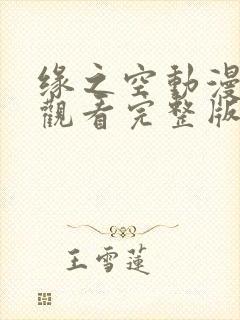 緣之空動漫
觀看完整版
王雪蓮